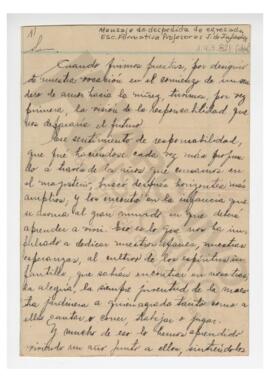 1)
Mensaje de despedida de egresada
Esc. Formativa Profesoras J. de Infantes
Cuando fuimos puestas, por designio
de nuestra vocación en el comienzo de un sen-
dero de amor hacia la niñez, tuvimos, por vez
primera, la visión de la responsabilidad que
nos depararía el futuro.
Ese sentimiento de responsabilidad,
que fué haciéndose cada vez más profun-
do a través de los años que cursamos en
el magisterio, buscó después horizontes más
amplios, y los encontró en la infancia que
se asoma al gran mundo en que deberá
aprender a vivir. Eso es lo que nos ha im-
pulsado a dedicar nuestros afanes, nuestras
esperanzas, al cultivo de los espíritus in-
fantiles, que sabían encontrar en nosotras
la alegría, la siempre juventud de la maes-
tra jardinera a quien agrada tanto como a
ellos cantar o correr, trabajar o jugar.
Y mucho de eso lo hemos aprendido
viviendo un año junto a ellos, sintiéndolos